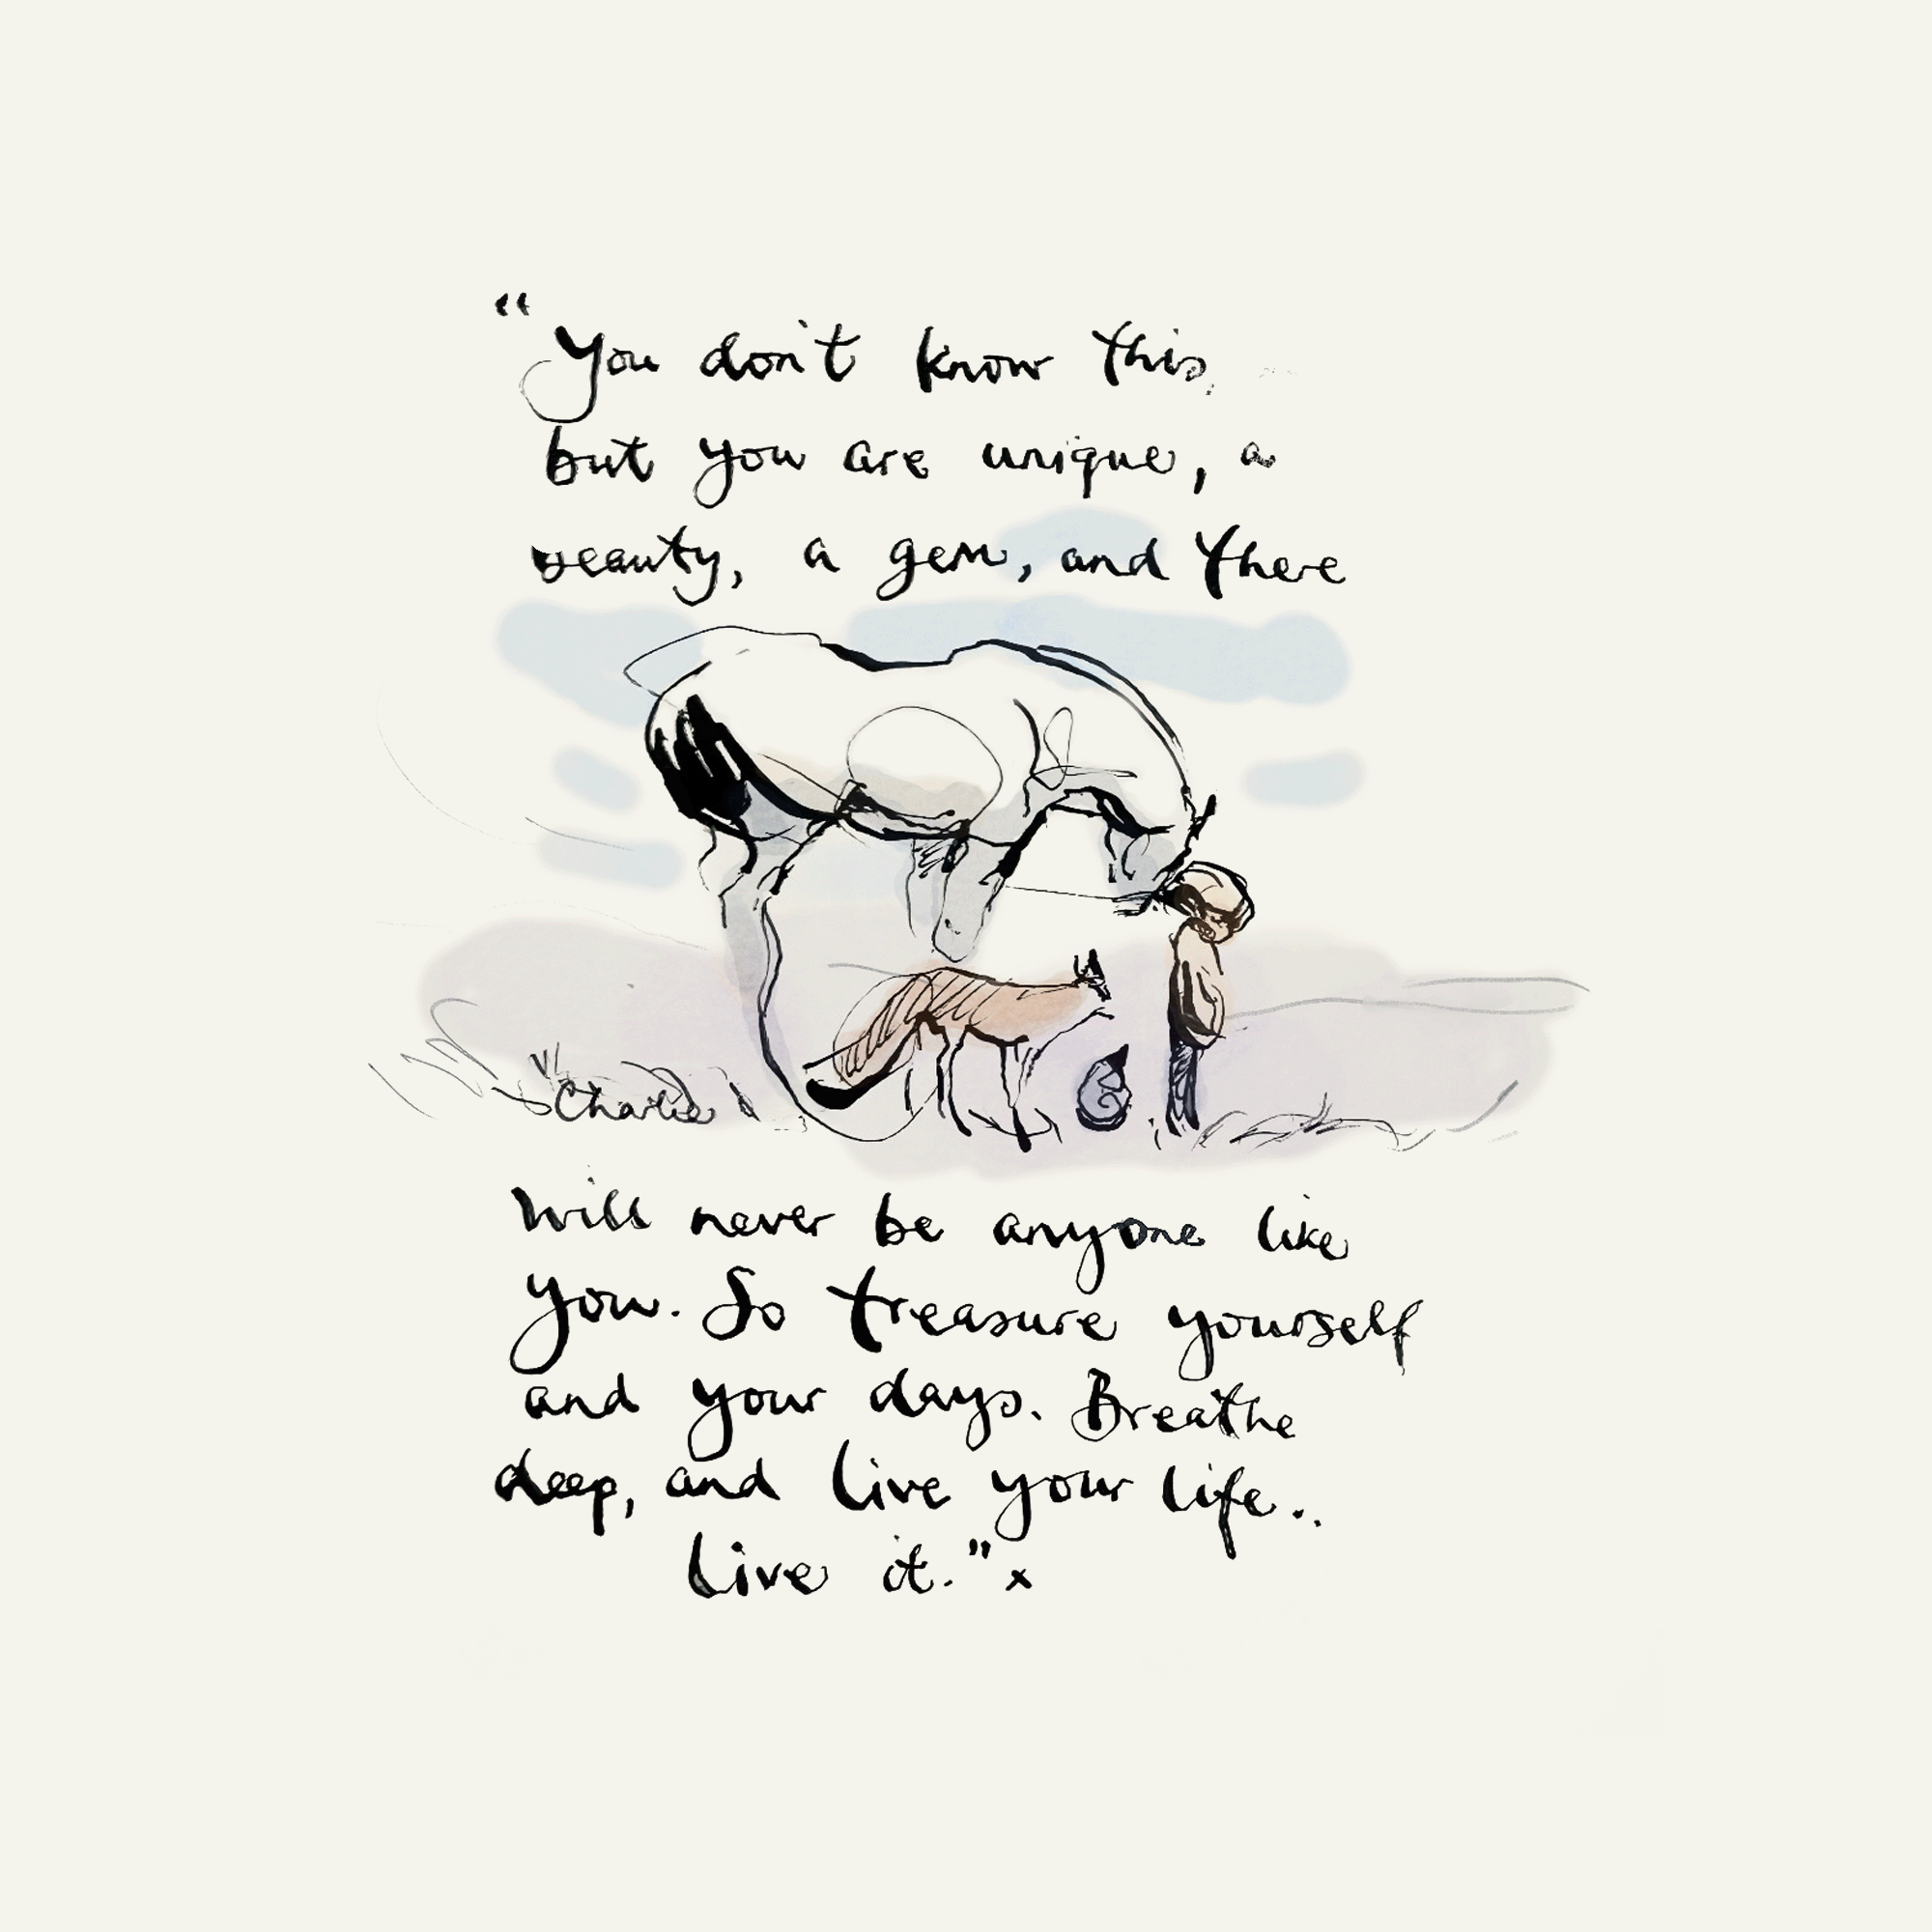 “You don't know this,
but you are unique, a
beauty, a gem, and there
Charlie
will never be anyone like
you. So treasure yourself
and your days. Breathe
deep, and live your life..
Live it.” x